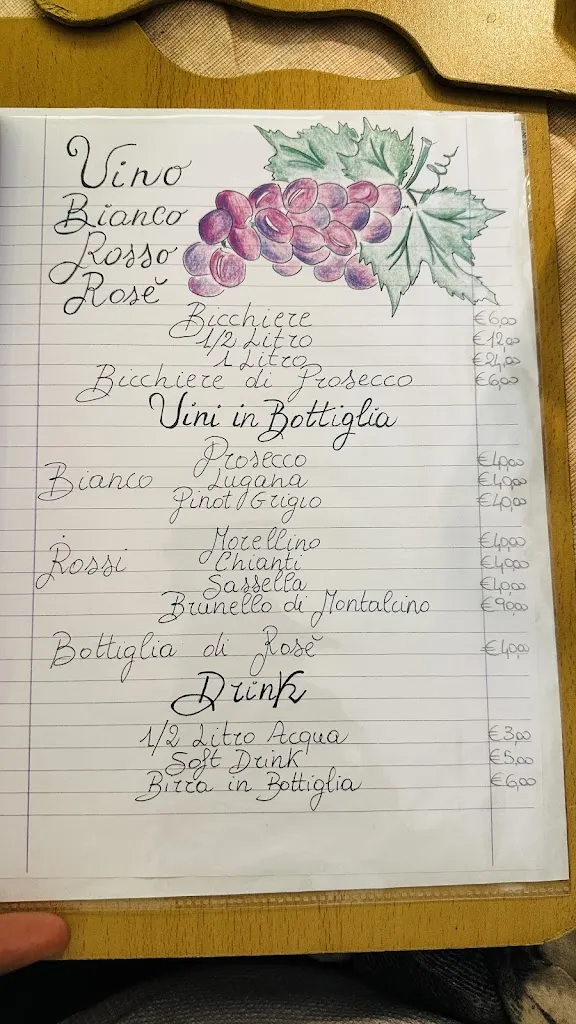 Vino
Bianco
Rosso
Rosĕ
Bicchiere €6,00
1/2 Litro €12,00
1 Litro €24,00
Bicchiere di Prosecco €6,00
Vini in Bottiglia
Prosecco €40,00
Bianco Lugana €40,00
Pinot Grigio €40,00
Morellino €40,00
Rossi Chianti €40,00
Sassella €40,00
Brunello di Montalcino €90,00
Bottiglia di Rosĕ €40,00
Drink
1/2 Litro Acqua €3,00
Soft Drink €5,00
Birra in Bottiglia €6,00